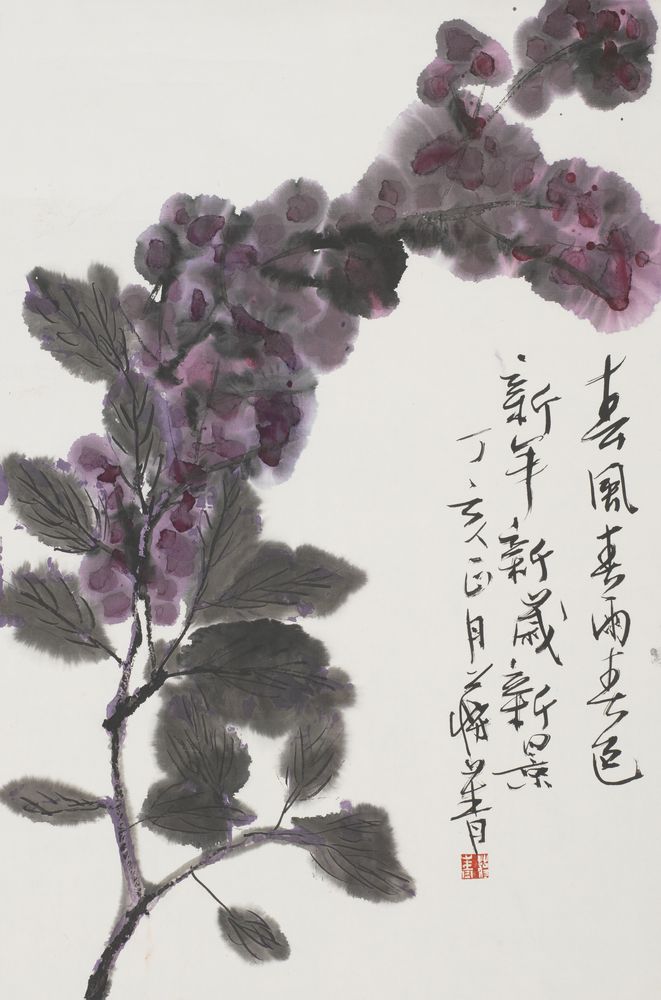 春風春雨春色
新年新歲新景
丁亥正月蔣菁